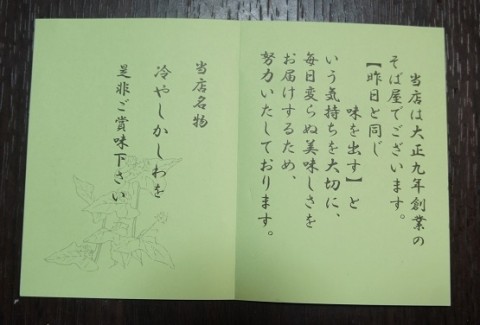 当店は大正九年創業の
そば屋でございます。
【昨日と同じ
味を出す】と
いう気持ちを大切に、
毎日変らぬ美味しさを
お届けするため、
努力いたしております。
当店名物
冷やしかしわを
是非ご賞味下さい